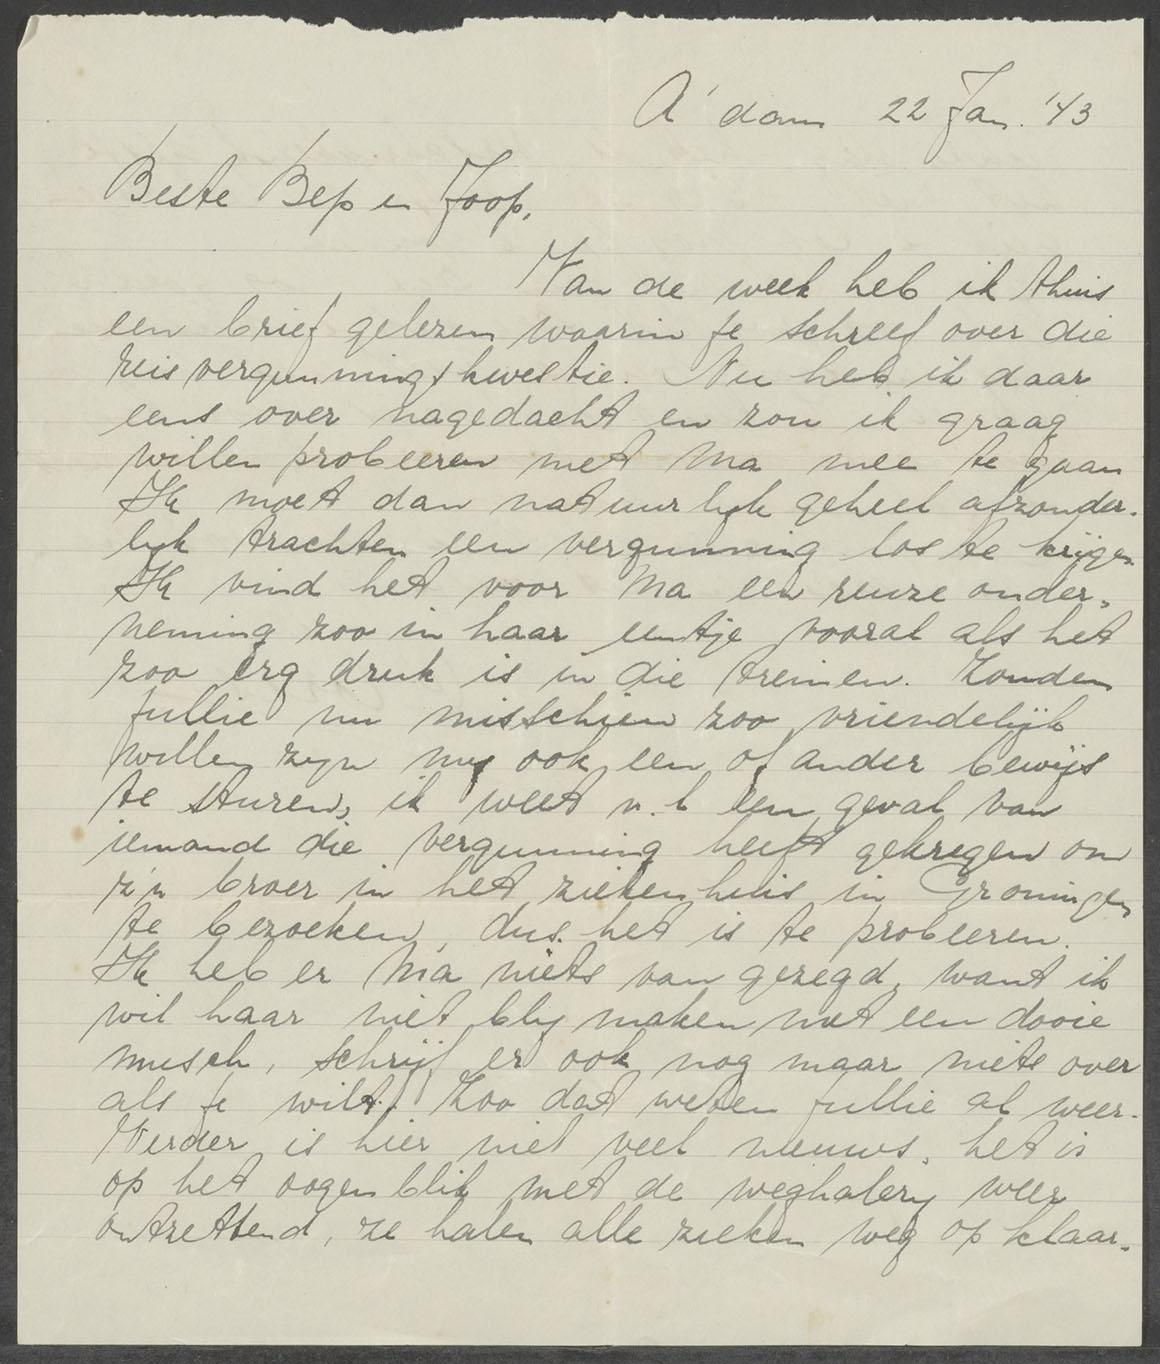 A'dam 22 Jan. '43
Beste Bep en Joop,
Van de week heb ik thuis
een brief gelezen waarin je schreef over die
reisvergunningskwestie. Nu heb ik daar
eens over nagedacht en zou ik graag
willen probeeren met Ma mee te gaan
Ik moet dan natuurlijk geheel afzonder-
lijk trachten een vergunning los te krijgen
Ik vind het voor Ma een reuze onder-
neming zoo in haar eentje vooral als het
zoo erg druk is in die treinen. Zouden
jullie nu misschien zoo vriendelijk
willen zijn mij ook een of ander bewijs
te sturen, ik weet n.l een geval van
iemand die vergunning heeft gekregen om
z'n broer in het ziekenhuis in Groningen
te bezoeken, dus het is te probeeren.
Ik heb er Ma niets van gezegd, want ik
wil haar niet blij maken met een dooie
musch, schrijf er ook nog maar niets over
als je wilt. Zoo dat weten jullie al weer.
Verder is hier niet veel nieuws, het is
op het oogenblik met de weghalerij weer
ontzettend, ze halen alle zieken weg op klaar-